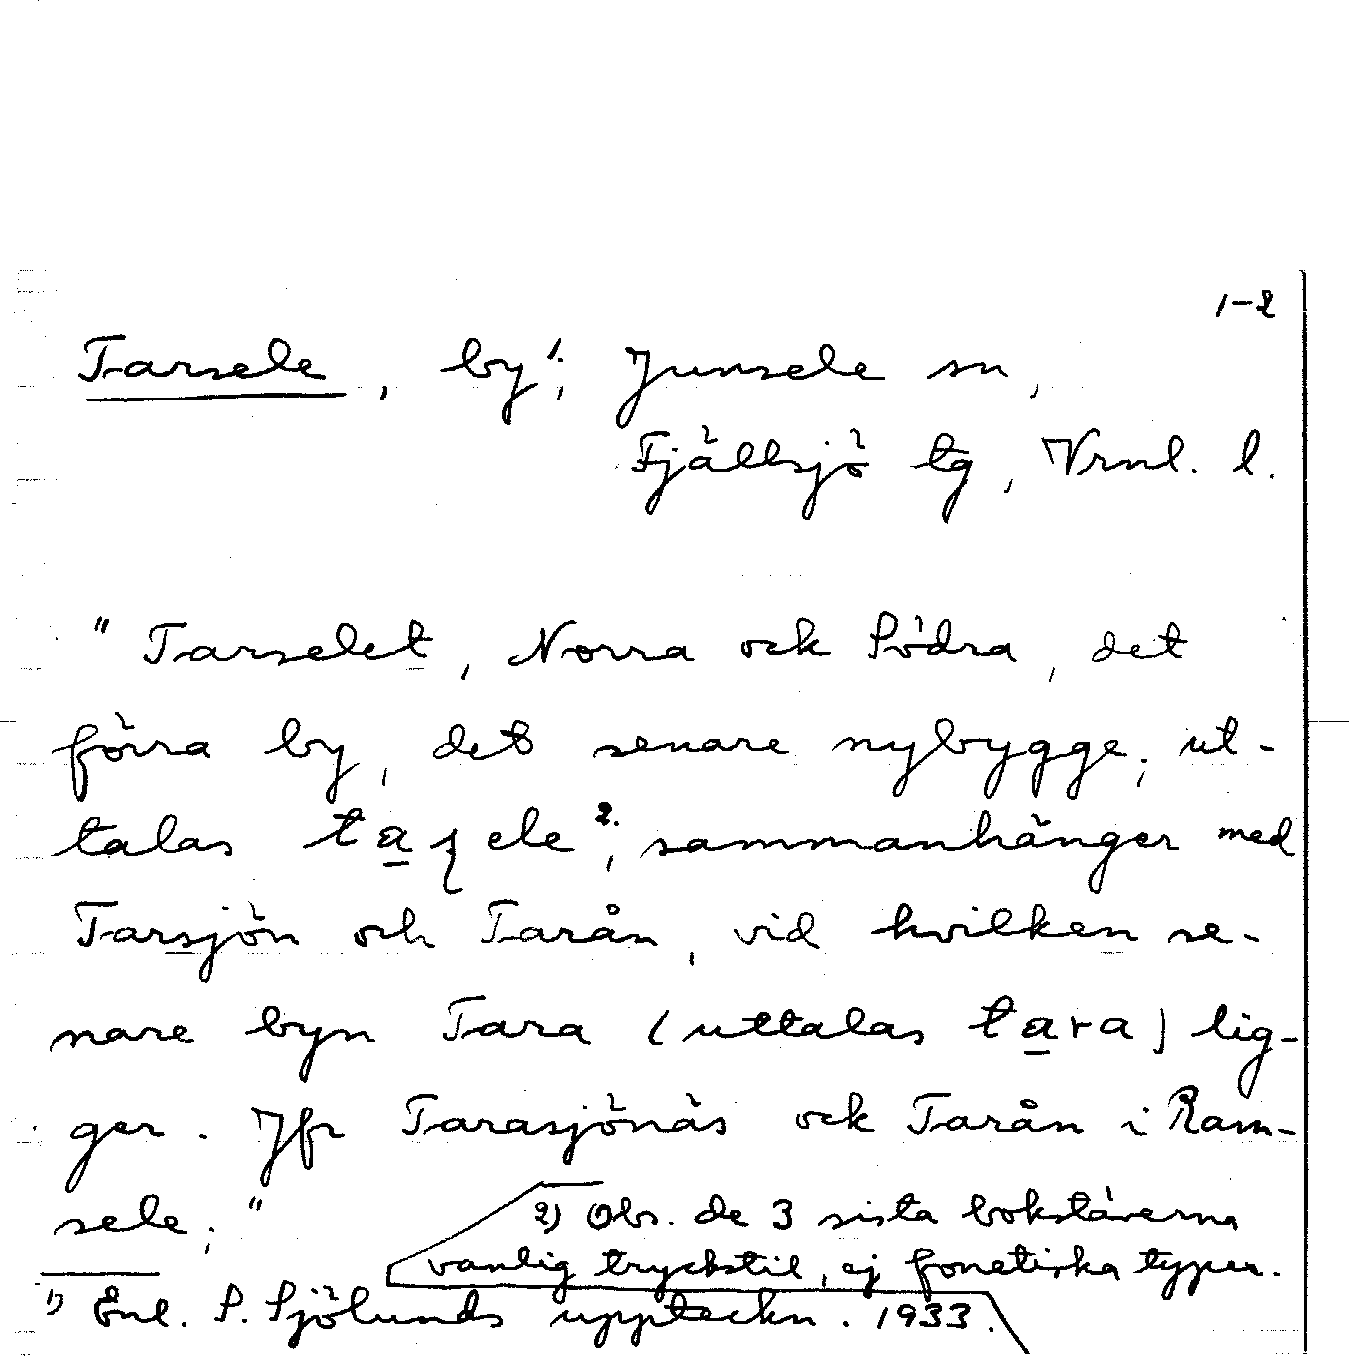 1-2
Tarsele, by¹; Junsele sn,
Fjällsjö tg, Vrnl. l.
"Tarselet, Norra ock Södra, det
förra by, det senare nybygge; ut-
talas taʂele²; sammanhänger med
Tarsjön och Tarån, vid hvilken se-
nare byn Tara (uttalas tara) lig-
ger. Jfr Tarasjönäs ock Tarån i Ram-
sele;"
2) Obs. de 3 sista bokstäverna
vanlig tryckstil, ej fonetiska typer.
1) Enl. S. Sjölunds uppteckn. 1933.